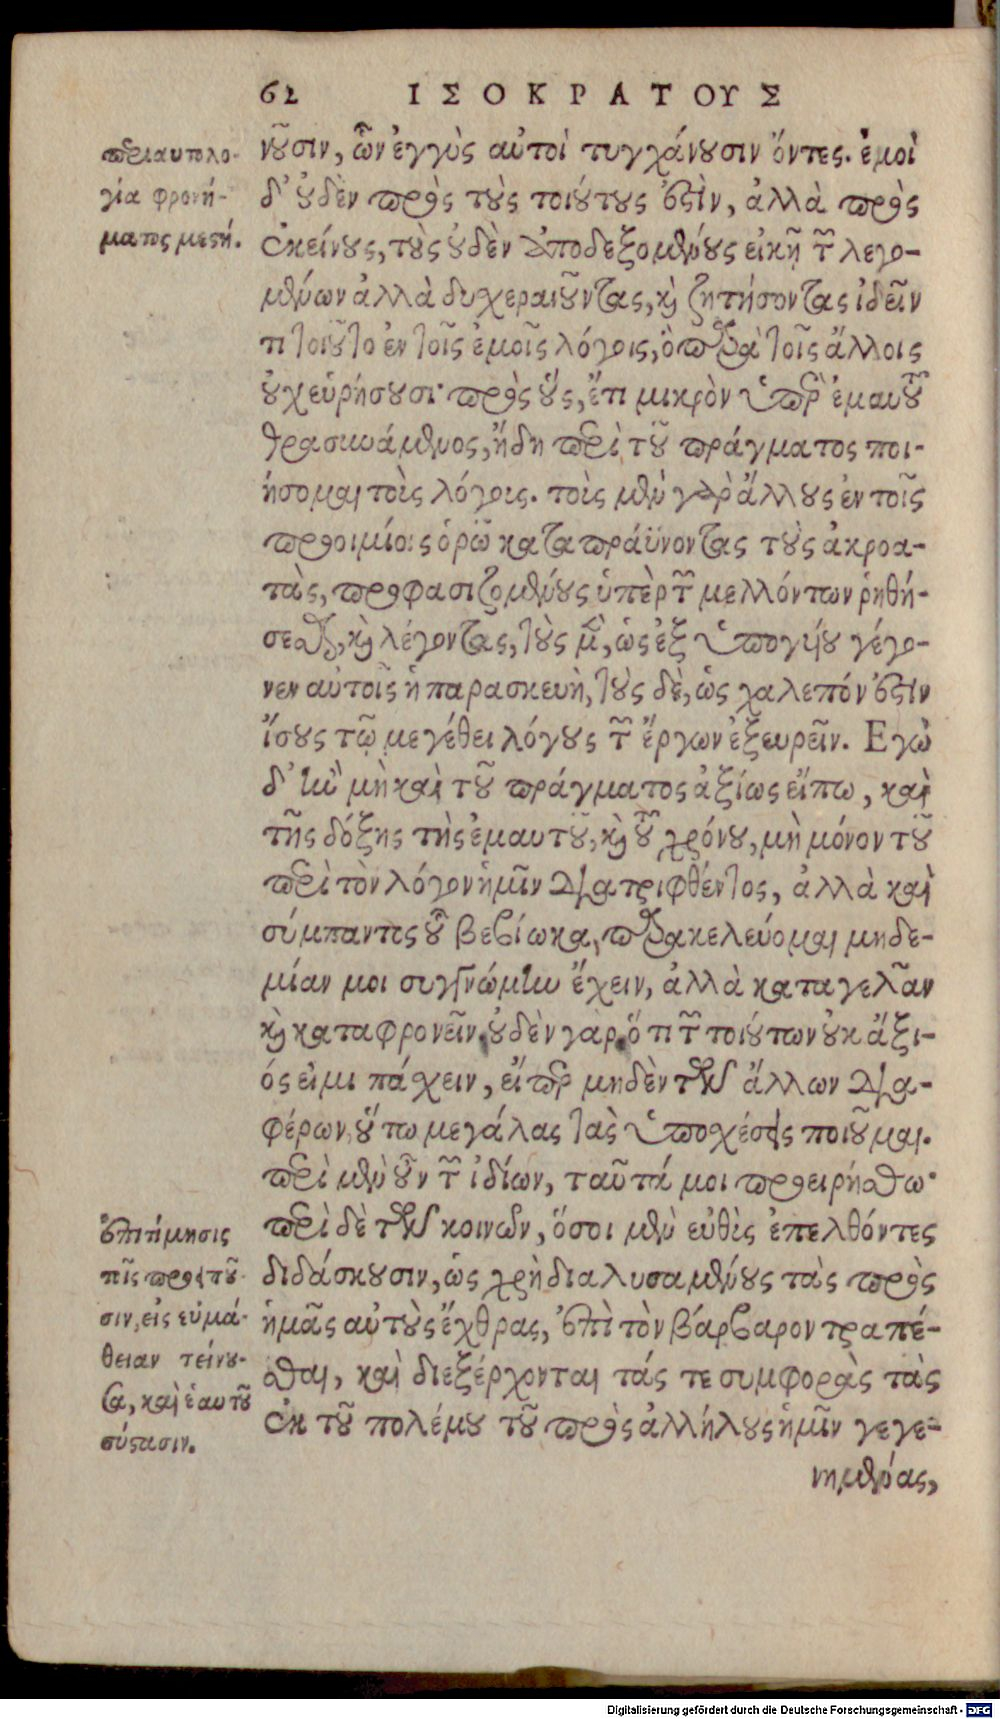 62 ΙΣΟΚΡΑΤΟΥΣ
περιαυτολο-
γία φρονή-
ματος μεστή.
νουσιν, ὧν ἐγγὺς αὐτοὶ τυγχάνουσιν ὄντες. ἐμοὶ
δ' οὐδὲν πρὸς τοὺς τοιούτους ἐστὶν, ἀλλὰ πρὸς
ἐκείνους, τοὺς οὐδὲν ἀποδεξομένους εἰκῇ τῶν λεγο-
μένων ἀλλὰ δυχεραιοῦντας, καὶ ζητήσοντας ἰδεῖν
τι τοιοῦτο ἐν τοῖς ἐμοῖς λόγοις, ὃ παρὰ τοῖς ἄλλοις
οὐχ εὑρήσουσι· πρὸς οὓς, ἔτι μικρὸν ὑπὲρ ἐμαυτοῦ
θρασυνάμενος, ἤδη περὶ τοῦ πράγματος ποι-
ήσομαι τοὺς λόγοις. τοὺς μὲν γὰρ ἄλλους ἐν τοῖς
προοιμίοις ὁρῶ καταπραΰνοντας τοὺς ἀκροα-
τὰς, προφασιζομένους ὑπὲρ τῶν μελλόντων ῥηθή-
σεσθαι, καὶ λέγοντας, τοὺς μὲν, ὡς ἐξ ὑπογυίου γέγο-
νεν αὐτοῖς ἡ παρασκευὴ, τοὺς δὲ, ὡς χαλεπόν ἐστιν
ἴσους τῷ μεγέθει λόγους τῶν ἔργων ἐξευρεῖν. Ἐγὼ
δ' ἢν μὴ καὶ τοῦ πράγματος ἀξίως εἴπω, καὶ
τῆς δόξης τῆς ἐμαυτοῦ, καὶ τοῦ χρόνου, μὴ μόνον τοῦ
περὶ τὸν λόγον ἡμῖν διατριφθέντος, ἀλλὰ καὶ
σύμπαντος οὗ βεβίωκα, παρακελεύομαι μηδε-
μίαν μοι συγγνώμην ἔχειν, ἀλλὰ καταγελᾶν
καὶ καταφρονεῖν, οὐδὲν γὰρ ὅ τι τῶν τοιούτων οὐκ ἄξι-
ός εἰμι πάχειν, εἴπερ μηδὲν τῶν ἄλλων δια-
φέρων, οὕπω μεγάλας τὰς ὑποχέσεις ποιοῦμαι.
περὶ μὲν οὖν τῶν ἰδίων, ταῦτά μοι προειρήσθω·
ἐπιτίμησις
τοῖς προστοῦ-
σιν, εἰς εὐμά-
θειαν τείνου-
σα, καὶ ἑαυτοῦ
σύστασιν.
περὶ δὲ τῶν κοινῶν, ὅσοι μὲν εὐθὺς ἐπελθόντες
διδάσκουσιν, ὡς χρὴ διαλυσαμένους τὰς πρὸς
ἡμᾶς αὐτοὺς ἔχθρας, ἐπὶ τὸν βάρβαρον τραπέ-
σθαι, καὶ διεξέρχονται τάς τε συμφορὰς τὰς
ἐκ τοῦ πολέμου τοῦ πρὸς ἀλλήλους ἡμῖν γεγε-
νημένας,
Digitalisierung gefördert durch die Deutsche Forschungsgemeinschaft - DFG